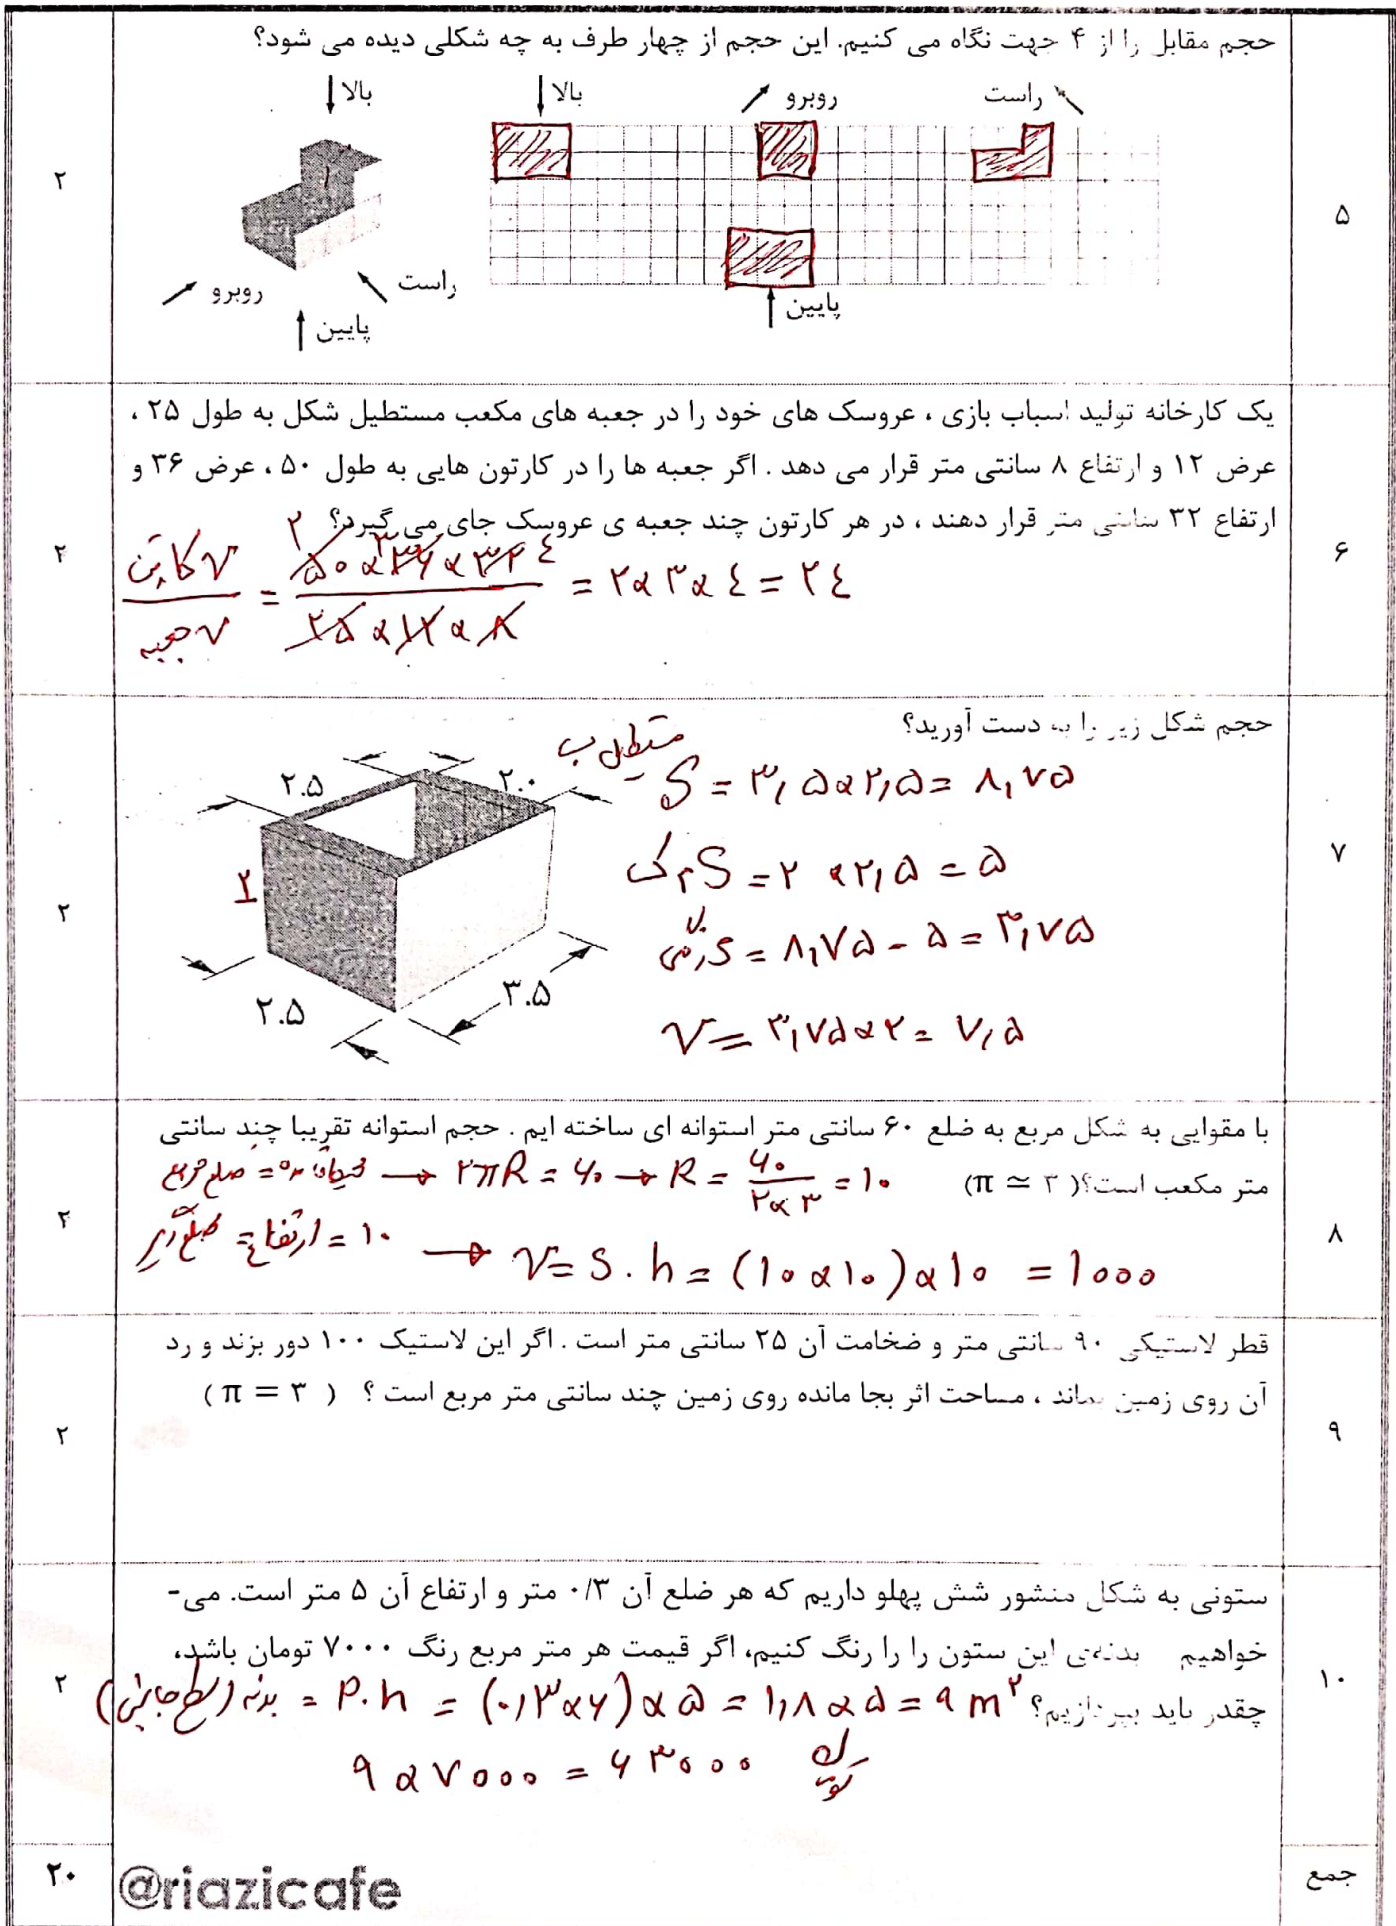 حجم مقابل را از ۴ جهت نگاه می کنیم. این حجم از چهار طرف به چه شکلی دیده می شود؟
بالا
بالا
روبرو
راست
۲
۵
راست
روبرو
پایین
پایین
یک کارخانه تولید اسباب بازی ، عروسک های خود را در جعبه های مکعب مستطیل شکل به طول ۲۵ ،
عرض ۱۲ و ارتفاع ۸ سانتی متر قرار می دهد . اگر جعبه ها را در کارتون هایی به طول ۵۰ ، عرض ۳۶ و
ارتفاع ۳۲ سانتی متر قرار دهند ، در هر کارتون چند جعبه ی عروسک جای می گیرد؟
۲
۶
۲ ۳ ٤
V کارتن / V جعبه = ۵۰×۳۶×۳۲ / ۲۵×۱۲×۸ = ۲×۳×٤ = ۲٤
حجم شکل زیر را به دست آورید؟
۲.۵
۲.۰
مستطیل ب
S = ۳,۵×۲,۵ = ۸,۷۵
S = ۲ ×۲,۵ = ۵
۷
۲
۲
S = ۸,۷۵ - ۵ = ۳,۷۵
۲.۵
۳.۵
V = ۳,۷۵×۲ = ۷,۵
با مقوایی به شکل مربع به ضلع ۶۰ سانتی متر استوانه ای ساخته ایم . حجم استوانه تقریبا چند سانتی
متر مکعب است؟( π ≃ ۳)
ضلع مربع = محیط قاعده → ۲πR = ۶۰ → R = ۶۰ / ۲×۳ = ۱۰
۲
۸
ارتفاع = ۱۰ → V = S . h = (۱۰×۱۰)×۱۰ = ۱۰۰۰
قطر لاستیکی ۹۰ سانتی متر و ضخامت آن ۲۵ سانتی متر است . اگر این لاستیک ۱۰۰ دور بزند و رد
آن روی زمین بماند ، مساحت اثر بجا مانده روی زمین چند سانتی متر مربع است ؟ ( π = ۳ )
۲
۹
ستونی به شکل منشور شش پهلو داریم که هر ضلع آن ۰/۳ متر و ارتفاع آن ۵ متر است. می-
خواهیم بدنه‌ی این ستون را را رنگ کنیم، اگر قیمت هر متر مربع رنگ ۷۰۰۰ تومان باشد،
چقدر باید بپردازیم؟
۲
۱۰
بدنه (سطح جانبی) = P.h = (۰,۳×۶)×۵ = ۱,۸×۵ = ۹ m²
۹ × ۷۰۰۰ = ۶۳۰۰۰ تومان
۲۰
جمع
@riazicafe